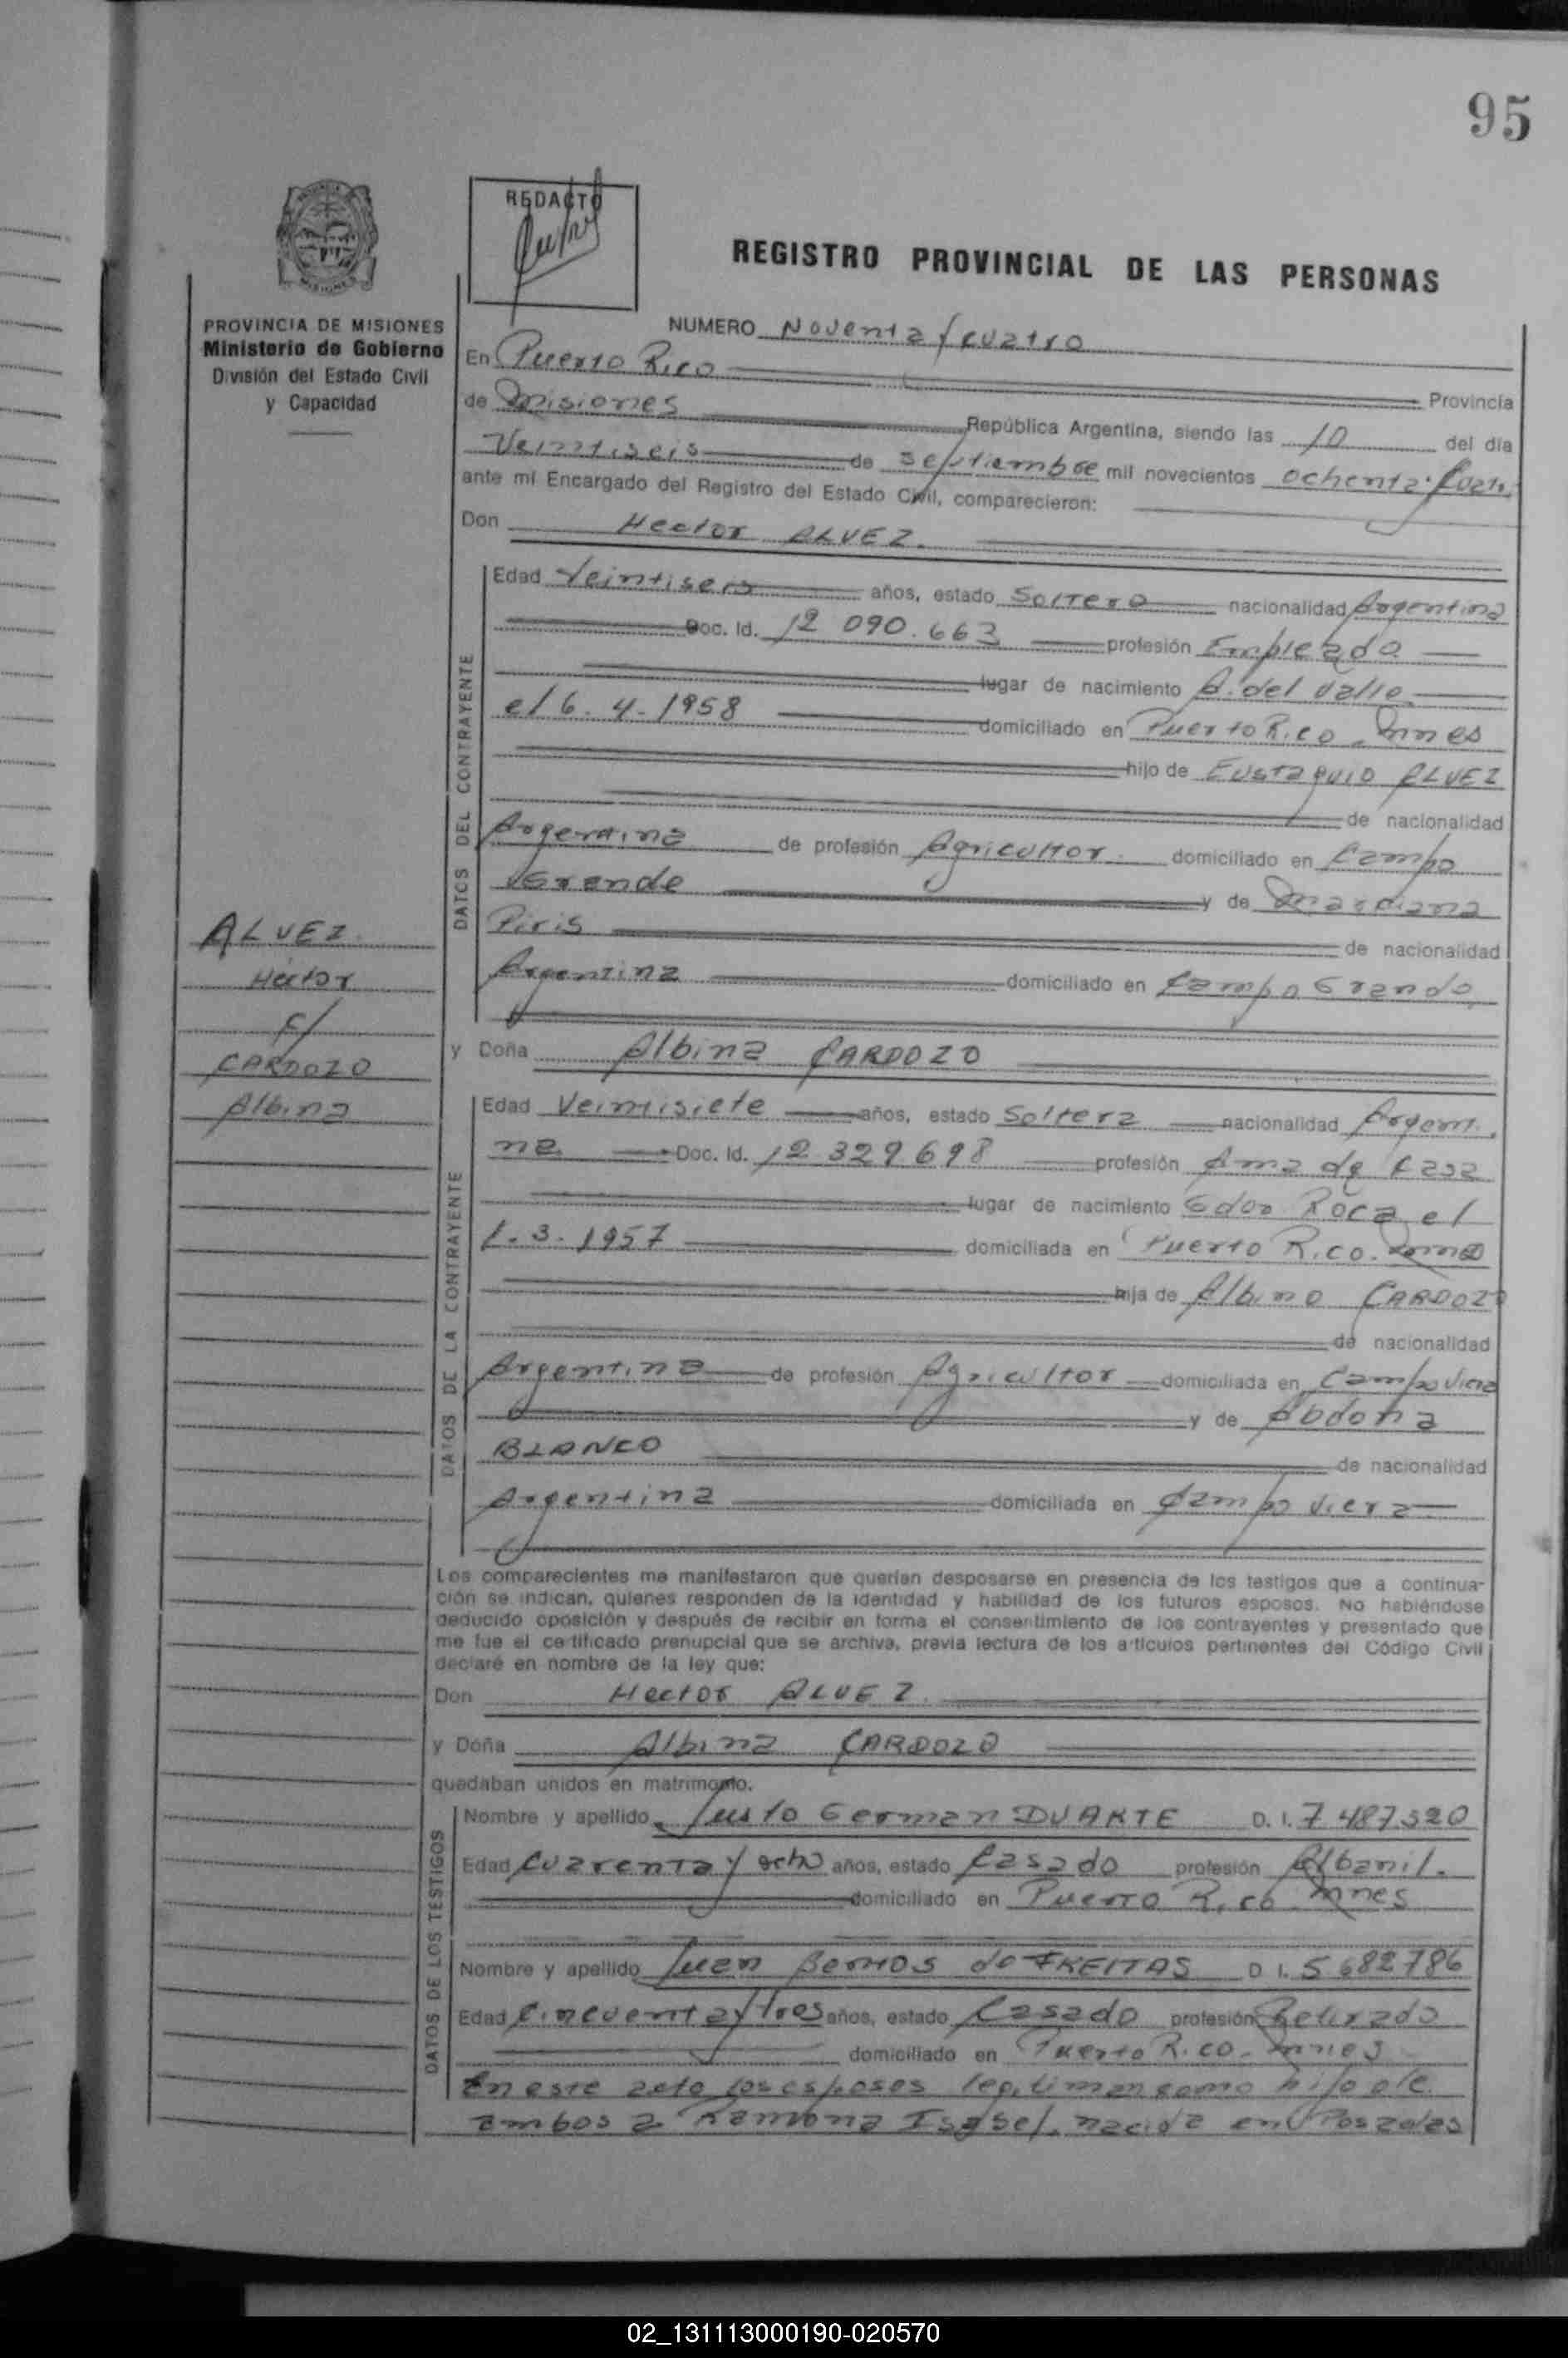 95
REDACTO
REGISTRO PROVINCIAL DE LAS PERSONAS
PROVINCIA DE MISIONES
Ministerio de Gobierno
División del Estado Civil
y Capacidad
NUMERO Noventa y cuatro
En Puerto Rico Provincia
de Misiones República Argentina, siendo las 10 del día
Veintiseis de septiembre mil novecientos ochenta y cuatro
ante mi Encargado del Registro del Estado Civil, comparecieron:
Don Hector ALVEZ.
DATOS DEL CONTRAYENTE
Edad Veintiseis años, estado Soltero nacionalidad Argentina
Doc. Id. 12 090.663 profesión Empleado
lugar de nacimiento A. del Valle
el 6. 4. 1958 domiciliado en Puerto Rico. Mnes
hijo de Eustaquio ALVEZ
de nacionalidad
Argentina de profesión Agricultor. domiciliado en Campo
Grande y de Marciana
Piris de nacionalidad
Argentina domiciliado en Campo Grande
ALVEZ
Héctor
c/
CARDOZO
Albina
y Doña Albina CARDOZO
DATOS DE LA CONTRAYENTE
Edad Veintisiete años, estado Soltera nacionalidad Argenti
na Doc. Id. 12 329 698 profesión Ama de Casa
lugar de nacimiento Gdor Roca el
1. 3. 1957 domiciliada en Puerto Rico. Mnes
hija de Albino CARDOZO
de nacionalidad
Argentina de profesión Agricultor domiciliada en Campo Viera
y de Abdona
BLANCO de nacionalidad
Argentina domiciliada en Campo Viera
Los comparecientes me manifestaron que querían desposarse en presencia de los testigos que a continua-
ción se indican, quienes responden de la identidad y habilidad de los futuros esposos. No habiéndose
deducido oposición y después de recibir en forma el consentimiento de los contrayentes y presentado que
me fue el certificado prenupcial que se archiva, previa lectura de los artículos pertinentes del Código Civil
declaré en nombre de la ley que:
Don Hector ALVEZ.
y Doña Albina CARDOZO
quedaban unidos en matrimonio.
DATOS DE LOS TESTIGOS
Nombre y apellido Justo German DUARTE D. I. 7 487320
Edad Cuarenta y ocho años, estado Casado profesión Albanil.
domiciliado en Puerto Rico. Mnes
Nombre y apellido Juan de FREITAS D I. 5682786
Edad Cincuenta y tres años, estado Casado profesión Retirado
domiciliado en Puerto Rico. Mnes
En este acto los esposos legitiman como hijo de
ambos a Ramona Isabel, nacida en Posadas
02_131113000190-020570